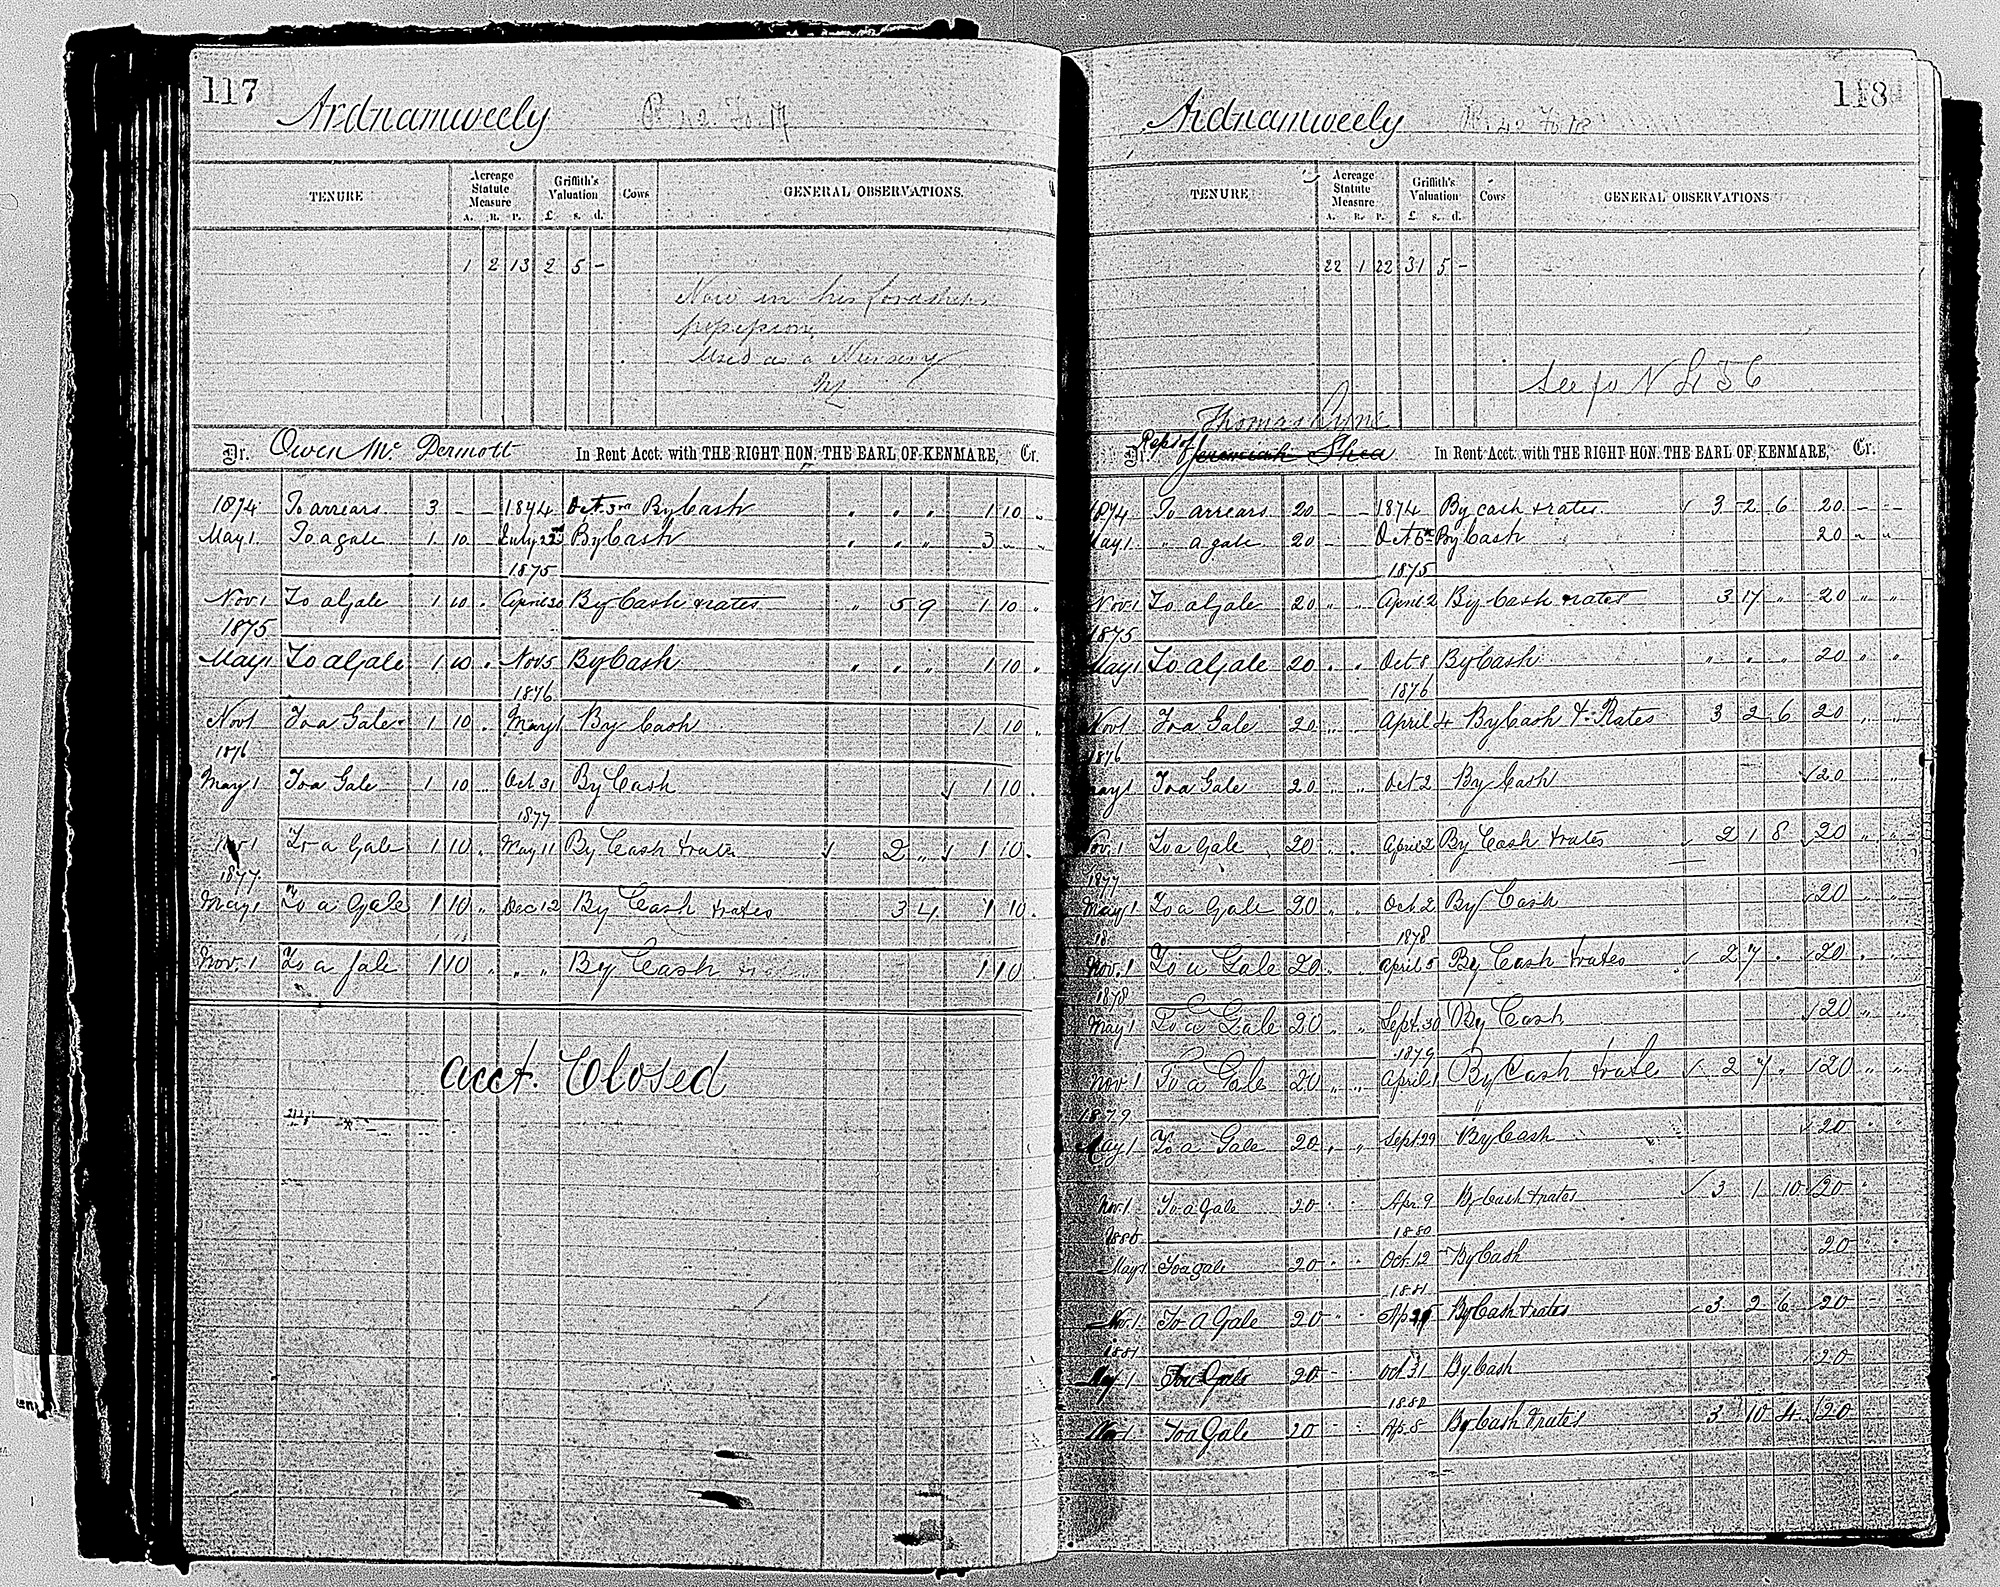 117
Ardnamweely
TENURE
Acreage Statute Measure
A. R. P.
Griffith's Valuation
£ s. d.
Cows
GENERAL OBSERVATIONS.
1 2 13 2 5 -
Now in his Lordships
possession
Used as a Nursery
Dr. Owen Mc Dermott In Rent Acct. with THE RIGHT HON. THE EARL OF KENMARE, Cr.
1874 To arrears 3 - - 1874 Oct 3rd By Cash " " " 1 10 "
May 1. To a gale 1 10 - July 22nd By Cash " " " 3 " "
1875
Nov 1 To a Gale 1 10 . April 30 By Cash & rates " 5 9 1 10 "
1875
May 1 To a Gale 1 10 . Nov 5 By Cash " " " 1 10 "
1876
Nov 1 To a Gale 1 10 . May 1 By Cash 1 10 "
1876
May 1 To a Gale 1 10 .. Oct 31 By Cash 1 10 .
1877
Nov 1 To a Gale 1 10 . May 11 By Cash & rates 2 " 1 10 .
1877
May 1 To a Gale 1 10 " Dec 12 By Cash & rates 3 4 1 10 .
Nov. 1 To a Gale 1 10 " " " By Cash 1 10
Acct. Closed
118
Ardnamweely
TENURE
Acreage Statute Measure
A. R. P.
Griffith's Valuation
£ s. d.
Cows
GENERAL OBSERVATIONS
22 1 22 31 5 -
See fo N
Thomas Lyne
Dr. Reps of Jeremiah Shea In Rent Acct. with THE RIGHT HON. THE EARL OF KENMARE, Cr.
1874 To arrears 20 - - 1874 By cash & rates. 3 2 6 20 - -
May 1 " a gale 20 - Oct 5th By Cash 20 " "
1875
Nov 1 To a Gale 20 " " April 2 By Cash & rates 3 17 " 20 " "
1875
May 1 To a Gale 20 . . Oct 8 By Cash " " " 20 " "
1876
Nov 1 To a Gale 20 .. .. April 4 By Cash & Rates 3 2 6 20 " "
1876
May 1 To a Gale 20 .. " Oct 2 By Cash 20 " "
Nov. 1 To a Gale 20 " . April 2 By Cash & rates 2 1 8 20 " "
1877
May 1 To a Gale 20 " " Oct. 2 By Cash 20 " "
18 1878
Nov. 1 To a Gale 20 " April 5 By Cash & rates 2 7 . 20 . "
1878
May 1 To a Gale 20 " " Sept. 30 By Cash 20 " "
1879
Nov. 1 To a Gale 20 " " April 1 By Cash & rates 2 7 " 20 " "
1879
May 1 To a Gale 20 " " Sept 29 By Cash 20 " "
Nov. 1. To a Gale 20 - Apr. 9 By Cash & rates 3 1 10 20 "
1880 1880
May 1 To a gale 20 " " Oct. 12 By Cash 20 "
1881
Nov. 1 To A Gale 20 " By Cash & rates 3 2 6 20 -
1881
May 1 To a Gale 20 - Oct 31 By Cash 20 -
1882
Nov 1. To a Gale 20 Ap. 8 By Cash & rates 3 10 4 20 -